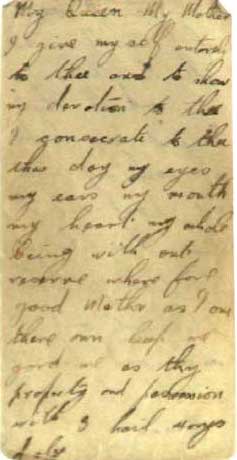 My Queen My Mother
I give my self entirely
to thee and to show
my devotion to thee
I consecrate to thee
this day my eyes
my ears my mouth
my heart my whole
Being with out
reserve where fore
good Mother as I am
there own keep me
gard me as thy
property and possession
with 3 hail marys
daly